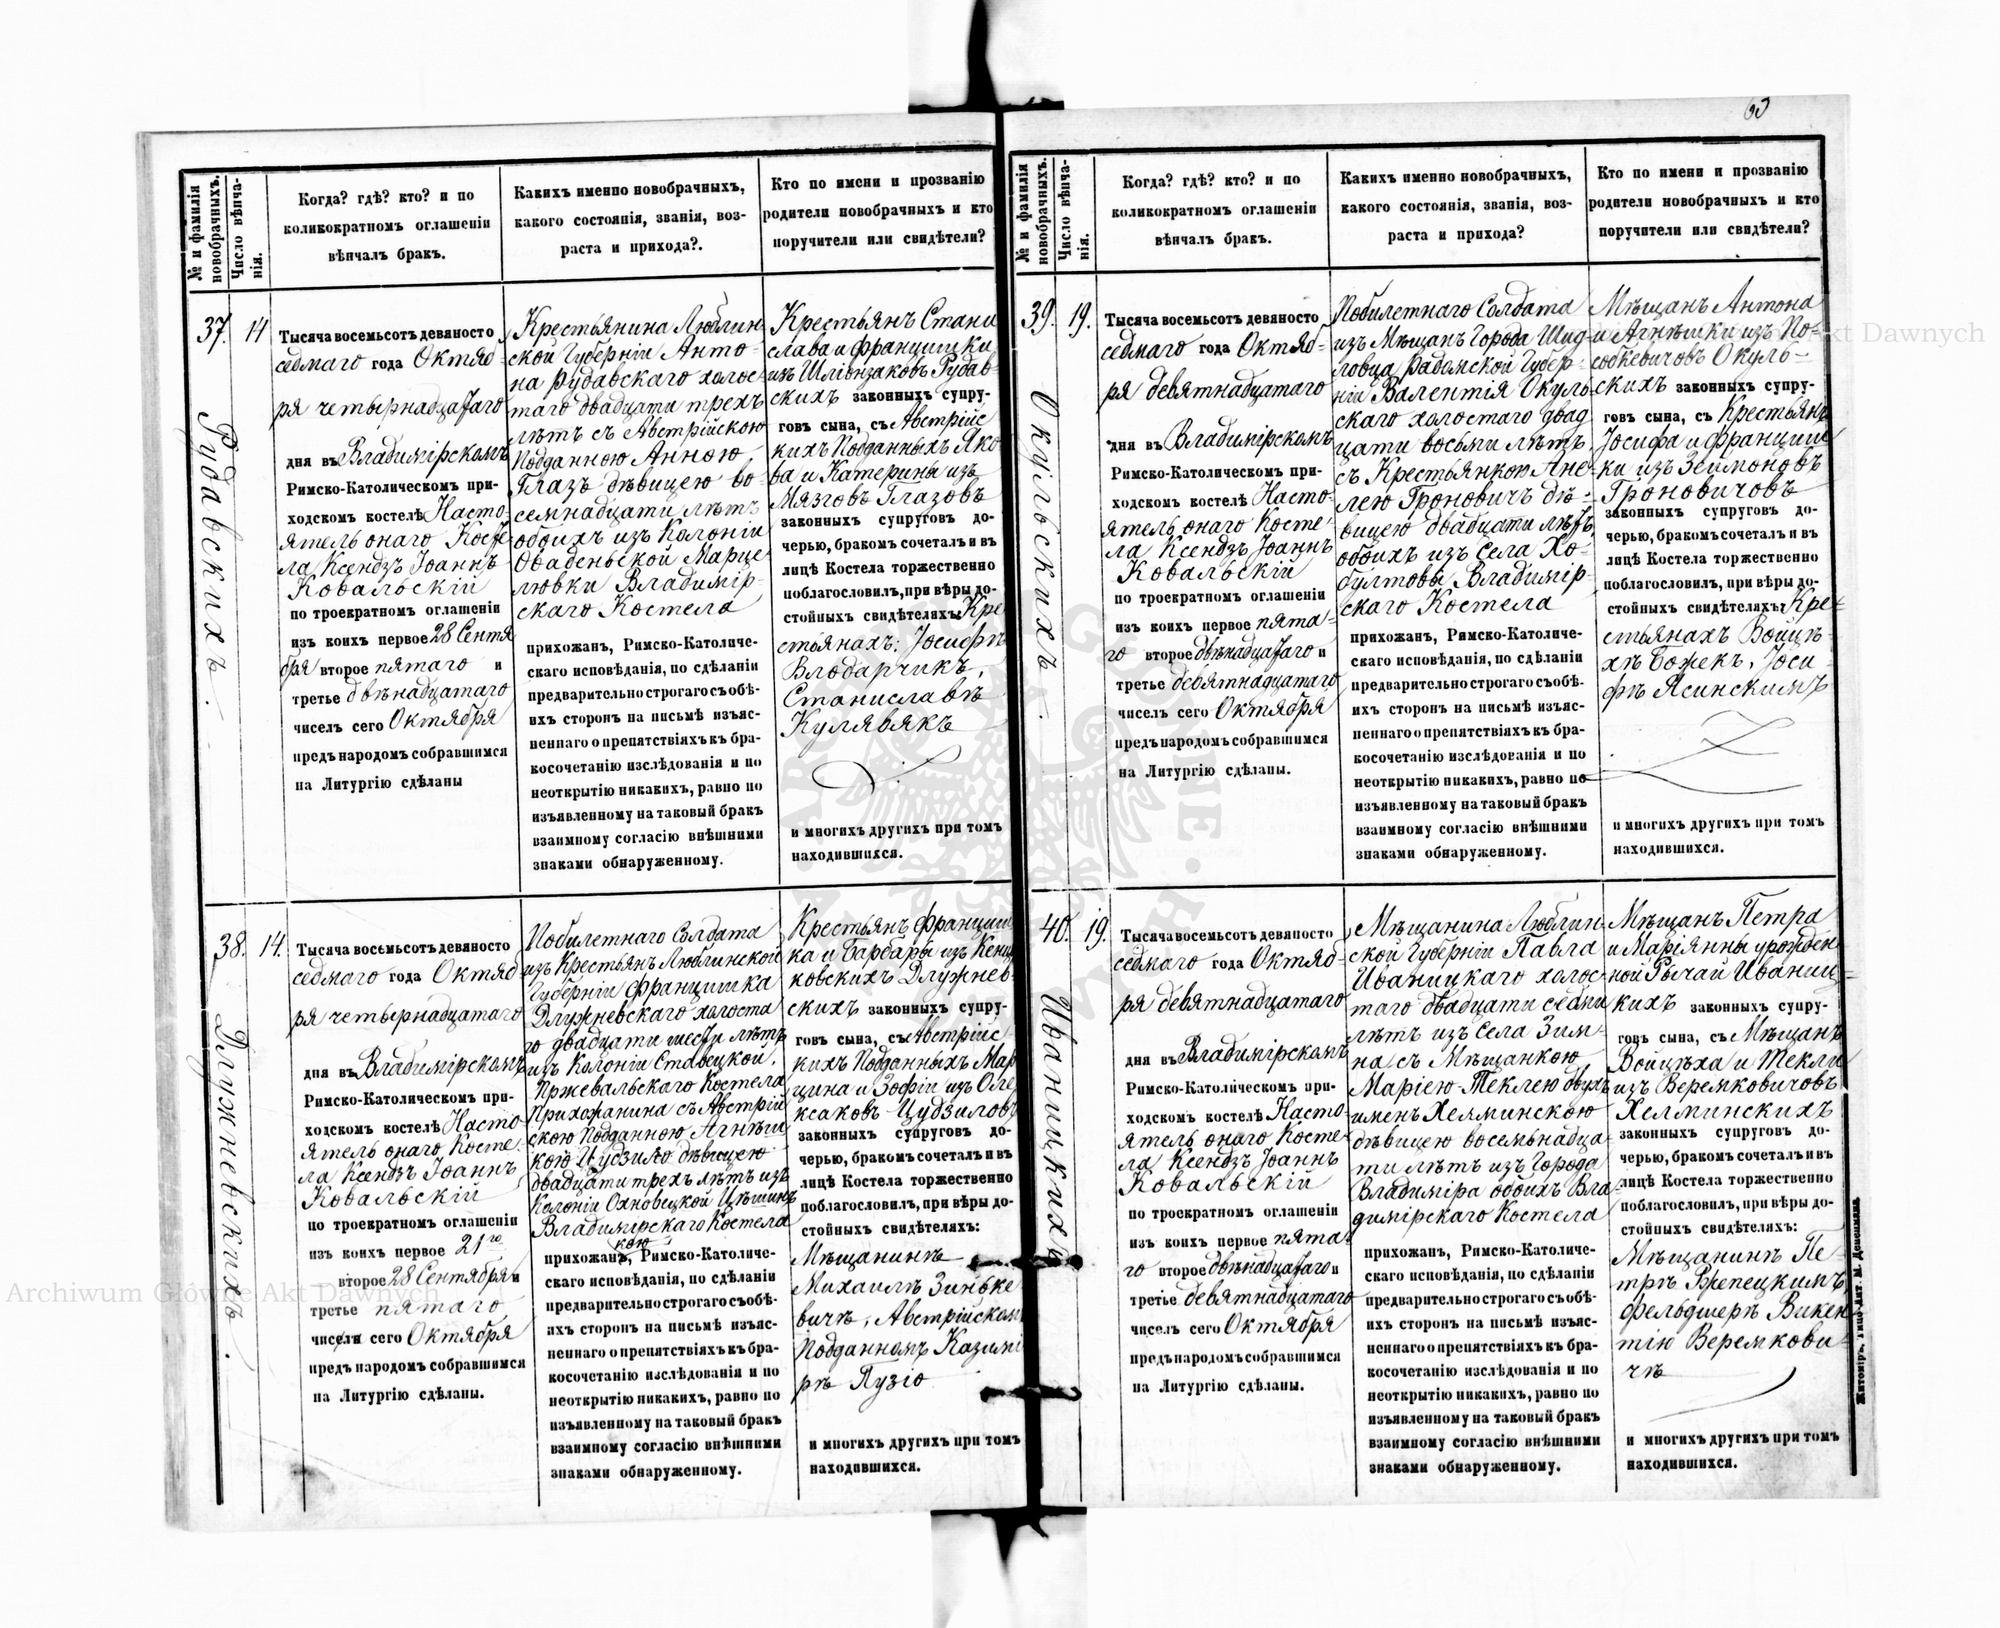 63
№ и фамилія новобрачныхъ.
Число вѣнча-
нія.
Когда? гдѣ? кто? и по
коликократномъ оглашеніи
вѣнчалъ бракъ.
Какихъ именно новобрачныхъ,
какого состоянія, званія, воз-
раста и прихода?.
Кто по имени и прозванію
родители новобрачныхъ и кто
поручители или свидѣтели?
37.
Рудавскихъ.
14
Тысяча восемьсотъ девяносто
седмаго года Октяб-
ря четырнадцатаго
дня въ Владимірскомъ
Римско-Католическомъ при-
ходскомъ костелѣ Насто-
ятель онаго Косте
ла Ксендзъ Іоаннъ
Ковальскій
по троекратномъ оглашеніи
изъ коихъ первое 28 Сентя
бря второе пятаго и
третье двѣнадцатаго
чиселъ сего Октября
предъ народомъ собравшимся
на Литургію сдѣланы
Крестьянина Люблин-
ской Губерніи Анто-
на Рудавскаго холос-
таго двадцати трехъ
лѣтъ съ Австрійскою
Подданною Анною
Глазъ дѣвицею во-
семнадцати лѣтъ
обоихъ изъ Колоніи
Оваденьской Марце-
ловки Владимір-
скаго Костела
прихожанъ, Римско-Католиче-
скаго исповѣданія, по сдѣланіи
предварительно строгаго съ обѣ-
ихъ сторонъ на письмѣ изъяс-
неннаго о препятствіяхъ къ бра-
косочетанію изслѣдованія и по
неоткрытію никакихъ, равно по
изъявленному на таковый бракъ
взаимному согласію внѣшними
знаками обнаруженному.
Крестьянъ Стани
слава и Францишки
изъ Шлівизаковъ Рудав-
скихъ законныхъ супру-
говъ сына, съ Австрійс
кихъ Подданныхъ Яко-
ва и Катерины изъ
Мязговъ Глазовъ
законныхъ супруговъ до-
черью, бракомъ сочеталъ и въ
лицѣ Костела торжественно
поблагословилъ, при вѣры до-
стойныхъ свидѣтеляхъ: Кре
стьянахъ: Іосифѣ
Влодарчикъ,
Станиславѣ
Кулявякъ
и многихъ другихъ при томъ
находившихся.
38.
Длужневскихъ.
14.
Тысяча восемьсотъ девяносто
седмаго года Октяб
ря четырнадцатаго
дня въ Владимірскомъ
Римско-Католическомъ при-
ходскомъ костелѣ Насто-
ятель онаго Косте-
ла Ксендзъ Іоаннъ
Ковальскій
по троекратномъ оглашеніи
изъ коихъ первое 21го
второе 28 Сентября и
третье пятаго
чиселъ сего Октября
предъ народомъ собравшимся
на Литургію сдѣланы.
Побилетнаго Солдата
изъ Крестьянъ Люблинской
Губерніи Францишка
Длужневскаго холоста
го двадцати шести лѣтъ
изъ Колоніи Ставецкой,
Пржевальскаго Костела
Прихожанина съ Австрій
скою Подданною Агнѣш
кою Цудзило дѣвицею
двадцати трехъ лѣтъ изъ
Колоніи Охновецкой Цѣшинъ
Владимірскаго Костела
кою
прихожанъ, Римско-Католиче-
скаго исповѣданія, по сдѣланіи
предварительно строгаго съ обѣ-
ихъ сторонъ на письмѣ изъяс-
неннаго о препятствіяхъ къ бра-
косочетанію изслѣдованія и по
неоткрытію никакихъ, равно по
изъявленному на таковый бракъ
взаимному согласію внѣшними
знаками обнаруженному.
Крестьянъ Франциш
ка и Барбары изъ Кениг
ковскихъ Длужнев-
скихъ законныхъ супру-
говъ сына, съ Австрійс-
кихъ Подданныхъ Мар
цина и Зофіи изъ Оле
ксаковъ Цудзиловъ
законныхъ супруговъ до-
черью, бракомъ сочеталъ и въ
лицѣ Костела торжественно
поблагословилъ, при вѣры до-
стойныхъ свидѣтеляхъ:
Мѣщанинѣ
Михаилѣ Зиньке
вичѣ, Австрійскомъ
Подданномъ Казими
рѣ Пузіо
и многихъ другихъ при томъ
находившихся.
№ и фамилія новобрачныхъ.
Число вѣнча-
нія.
Когда? гдѣ? кто? и по
коликократномъ оглашеніи
вѣнчалъ бракъ.
Какихъ именно новобрачныхъ,
какого состоянія, званія, воз-
раста и прихода?
Кто по имени и прозванію
родители новобрачныхъ и кто
поручители или свидѣтели?
39.
Окульскихъ.
19.
Тысяча восемьсотъ девяносто
седмаго года Октяб-
ря девятнадцатаго
дня въ Владимірскомъ
Римско-Католическомъ при-
ходскомъ костелѣ Насто-
ятель онаго Косте-
ла Ксендзъ Іоаннъ
Ковальскій
по троекратномъ оглашеніи
изъ коихъ первое пята-
го второе двѣнадцатаго и
третье девятнадцатаго
чиселъ сего Октября
предъ народомъ собравшимся
на Литургію сдѣланы.
Побилетнаго Солдата
изъ Мѣщанъ Города Шид-
ловца Радомской Губер-
ніи Валентія Окуль-
скаго холостаго двад
цати восьми лѣтъ,
съ Крестьянкою Ане-
лею Гроновичъ дѣ-
вицею двадцати лѣтъ,
обоихъ изъ Села Хо-
бултовы Владимір-
скаго Костела
прихожанъ, Римско-Католиче-
скаго исповѣданія, по сдѣланіи
предварительно строгаго съ обѣ-
ихъ сторонъ на письмѣ изъяс-
неннаго о препятствіяхъ къ бра-
косочетанію изслѣдованія и по
неоткрытію никакихъ, равно по
изъявленному на таковый бракъ
взаимному согласію внѣшними
знаками обнаруженному.
Мѣщанъ Антона
и Агнѣшки изъ По-
содкевичовъ Окуль-
скихъ законныхъ супру-
говъ сына, съ Крестьянъ
Іосифа и Францишки
ки изъ Зеимоновъ
Гроновичовъ
законныхъ супруговъ до-
черью, бракомъ сочеталъ и въ
лицѣ Костела торжественно
поблагословилъ, при вѣры до-
стойныхъ свидѣтеляхъ: Кре-
стьянахъ Войцѣ-
хѣ Божекъ, Іоси-
фѣ Ясинскимъ
и многихъ другихъ при томъ
находившихся.
40.
Иваницкихъ
19.
Тысяча восемьсотъ девяносто
седмаго года Октяб-
ря девятнадцатаго
дня въ Владимірскомъ
Римско-Католическомъ при-
ходскомъ костелѣ Насто-
ятель онаго Косте-
ла Ксендзъ Іоаннъ
Ковальскій
по троекратномъ оглашеніи
изъ коихъ первое пята-
го второе двѣнадцатаго и
третье девятнадцатаго
чиселъ сего Октября
предъ народомъ собравшимся
на Литургію сдѣланы.
Мѣщанина Люблин-
ской Губерніи Павла
Иваницкаго холос-
таго двадцати седми
лѣтъ изъ Села Зим-
на съ Мѣщанкою
Маріею-Теклею двухъ
именъ Хелминскою
дѣвицею восемьнадца-
ти лѣтъ изъ Города
Владиміра обоихъ Вла-
димірскаго Костела
прихожанъ, Римско-Католиче-
скаго исповѣданія, по сдѣланіи
предварительно строгаго съ обѣ-
ихъ сторонъ на письмѣ изъяс-
неннаго о препятствіяхъ къ бра-
косочетанію изслѣдованія и по
неоткрытію никакихъ, равно по
изъявленному на таковый бракъ
взаимному согласію внѣшними
знаками обнаруженному.
Мѣщанъ Петра
и Маріянны урожден
ной Рычай Иваниц-
кихъ законныхъ супру-
говъ сына, съ Мѣщанъ
Войцѣха и Текли
изъ Веремковичовъ
Хелминскихъ
законныхъ супруговъ до-
черью, бракомъ сочеталъ и въ
лицѣ Костела торжественно
поблагословилъ, при вѣры до-
стойныхъ свидѣтеляхъ:
Мѣщанинѣ Пе-
трѣ Бжепецкимъ,
Фельдшерѣ Викен
тію Веремкови-
чѣ
и многихъ другихъ при томъ
находившихся.
Житомiръ, Типо-Лит. М. Дененмана
Archiwum Główne Akt Dawnych
Akt Dawnych